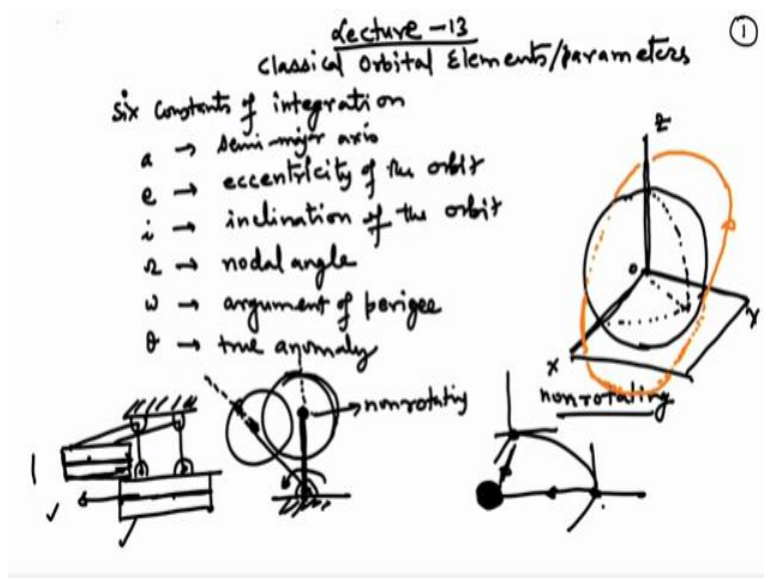 Lecture -13
①
Classical Orbital Elements/parameters
Six constants of integration
a → semi-major axis
e → eccentricity of the orbit
i → inclination of the orbit
Ω → nodal angle
ω → argument of perigee
θ → true anomaly
Z
O
Y
X
nonrotating
nonrotating